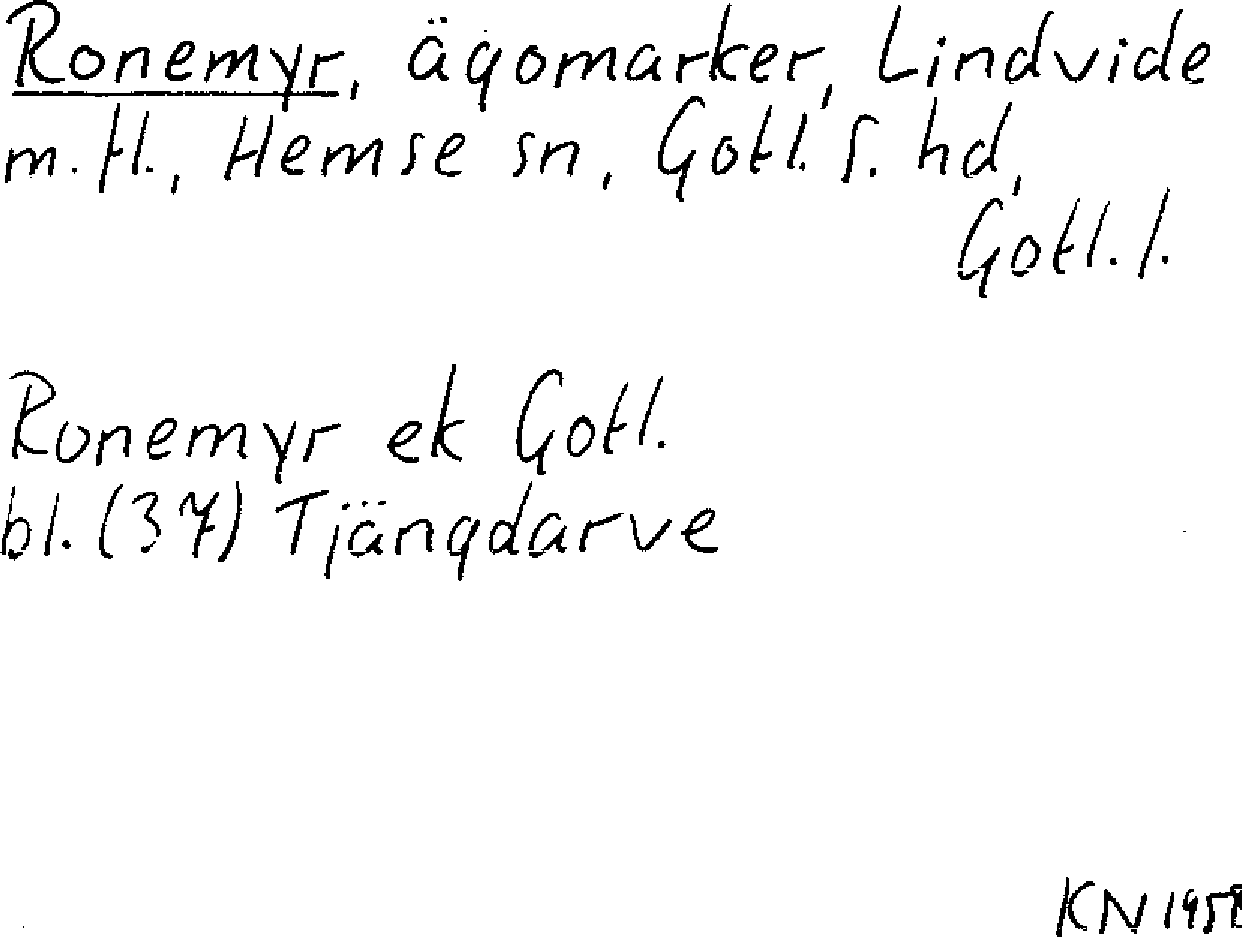 Ronemyr, ägomarker, Lindvide
m.fl., Hemse sn, Gotl. s. hd,
Gotl. l.
Ronemyr ek Gotl.
bl. (37) Tjängdarve
KN